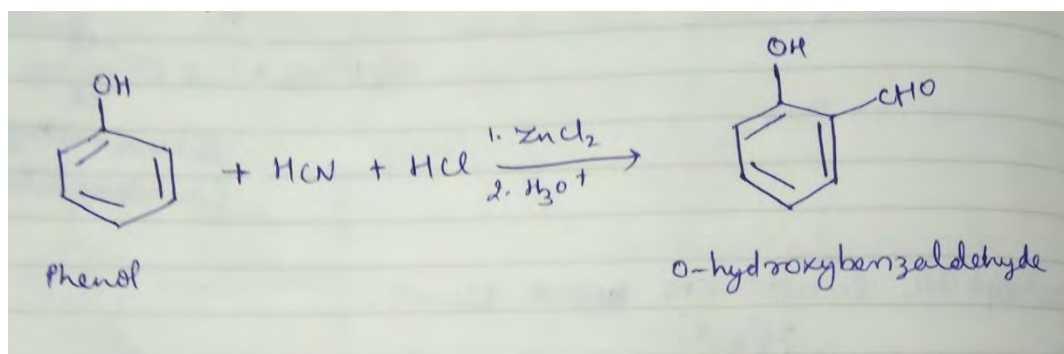 OH
+ HCN + HCl
1. ZnCl2
2. H3O+
OH
CHO
Phenol
o-hydroxybenzaldehyde